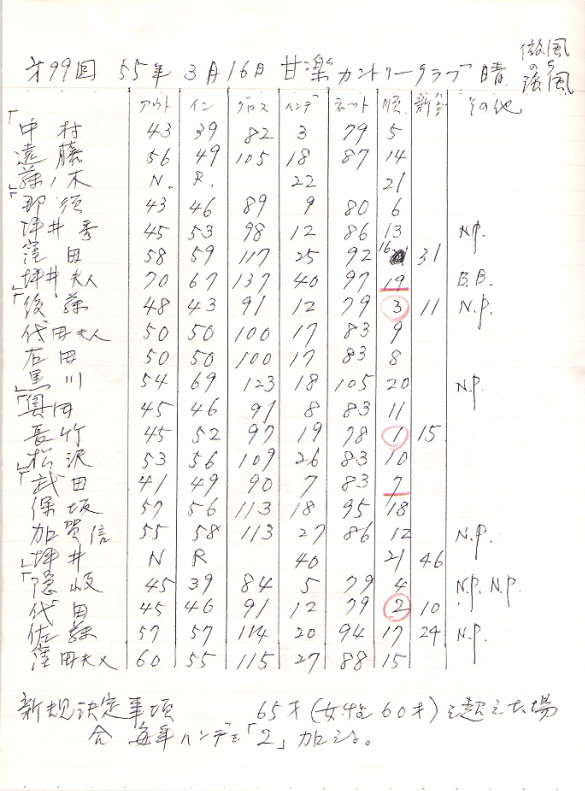 第99回 55年 3月16日 甘楽カントリークラブ 晴 微風のち強風
アウト イン グロス ハンデ ネット 順 新 その他
「中村 43 39 82 3 79 5
遠藤 56 49 105 18 87 14
藤ノ木 N. R. 22 21
「那須 43 46 89 9 80 6
坪井秀 45 53 98 12 86 13 N.P.
窪田 58 59 117 25 92 16 31
坪井夫人 70 67 137 40 97 19 B.B.
「後藤 48 43 91 12 79 3 11 N.P.
代田夫人 50 50 100 17 83 9
石田 50 50 100 17 83 8
黒川 54 69 123 18 105 20 N.P.
「奥田 45 46 91 8 83 11
長竹 45 52 97 19 78 1 15
松沢 53 56 109 26 83 10
「武田 41 49 90 7 83 7
保坂 57 56 113 18 95 18
加賀信 55 58 113 27 86 12 N.P.
坪井 N R 40 21 46
「隠岐 45 39 84 5 79 4 N.P. N.P.
代田 45 46 91 12 79 2 10
佐藤 57 57 114 20 94 17 24 N.P.
窪田夫人 60 55 115 27 88 15
新規決定事項 65才(女性60才)を超えた場
合 毎年ハンデを「2」加える。